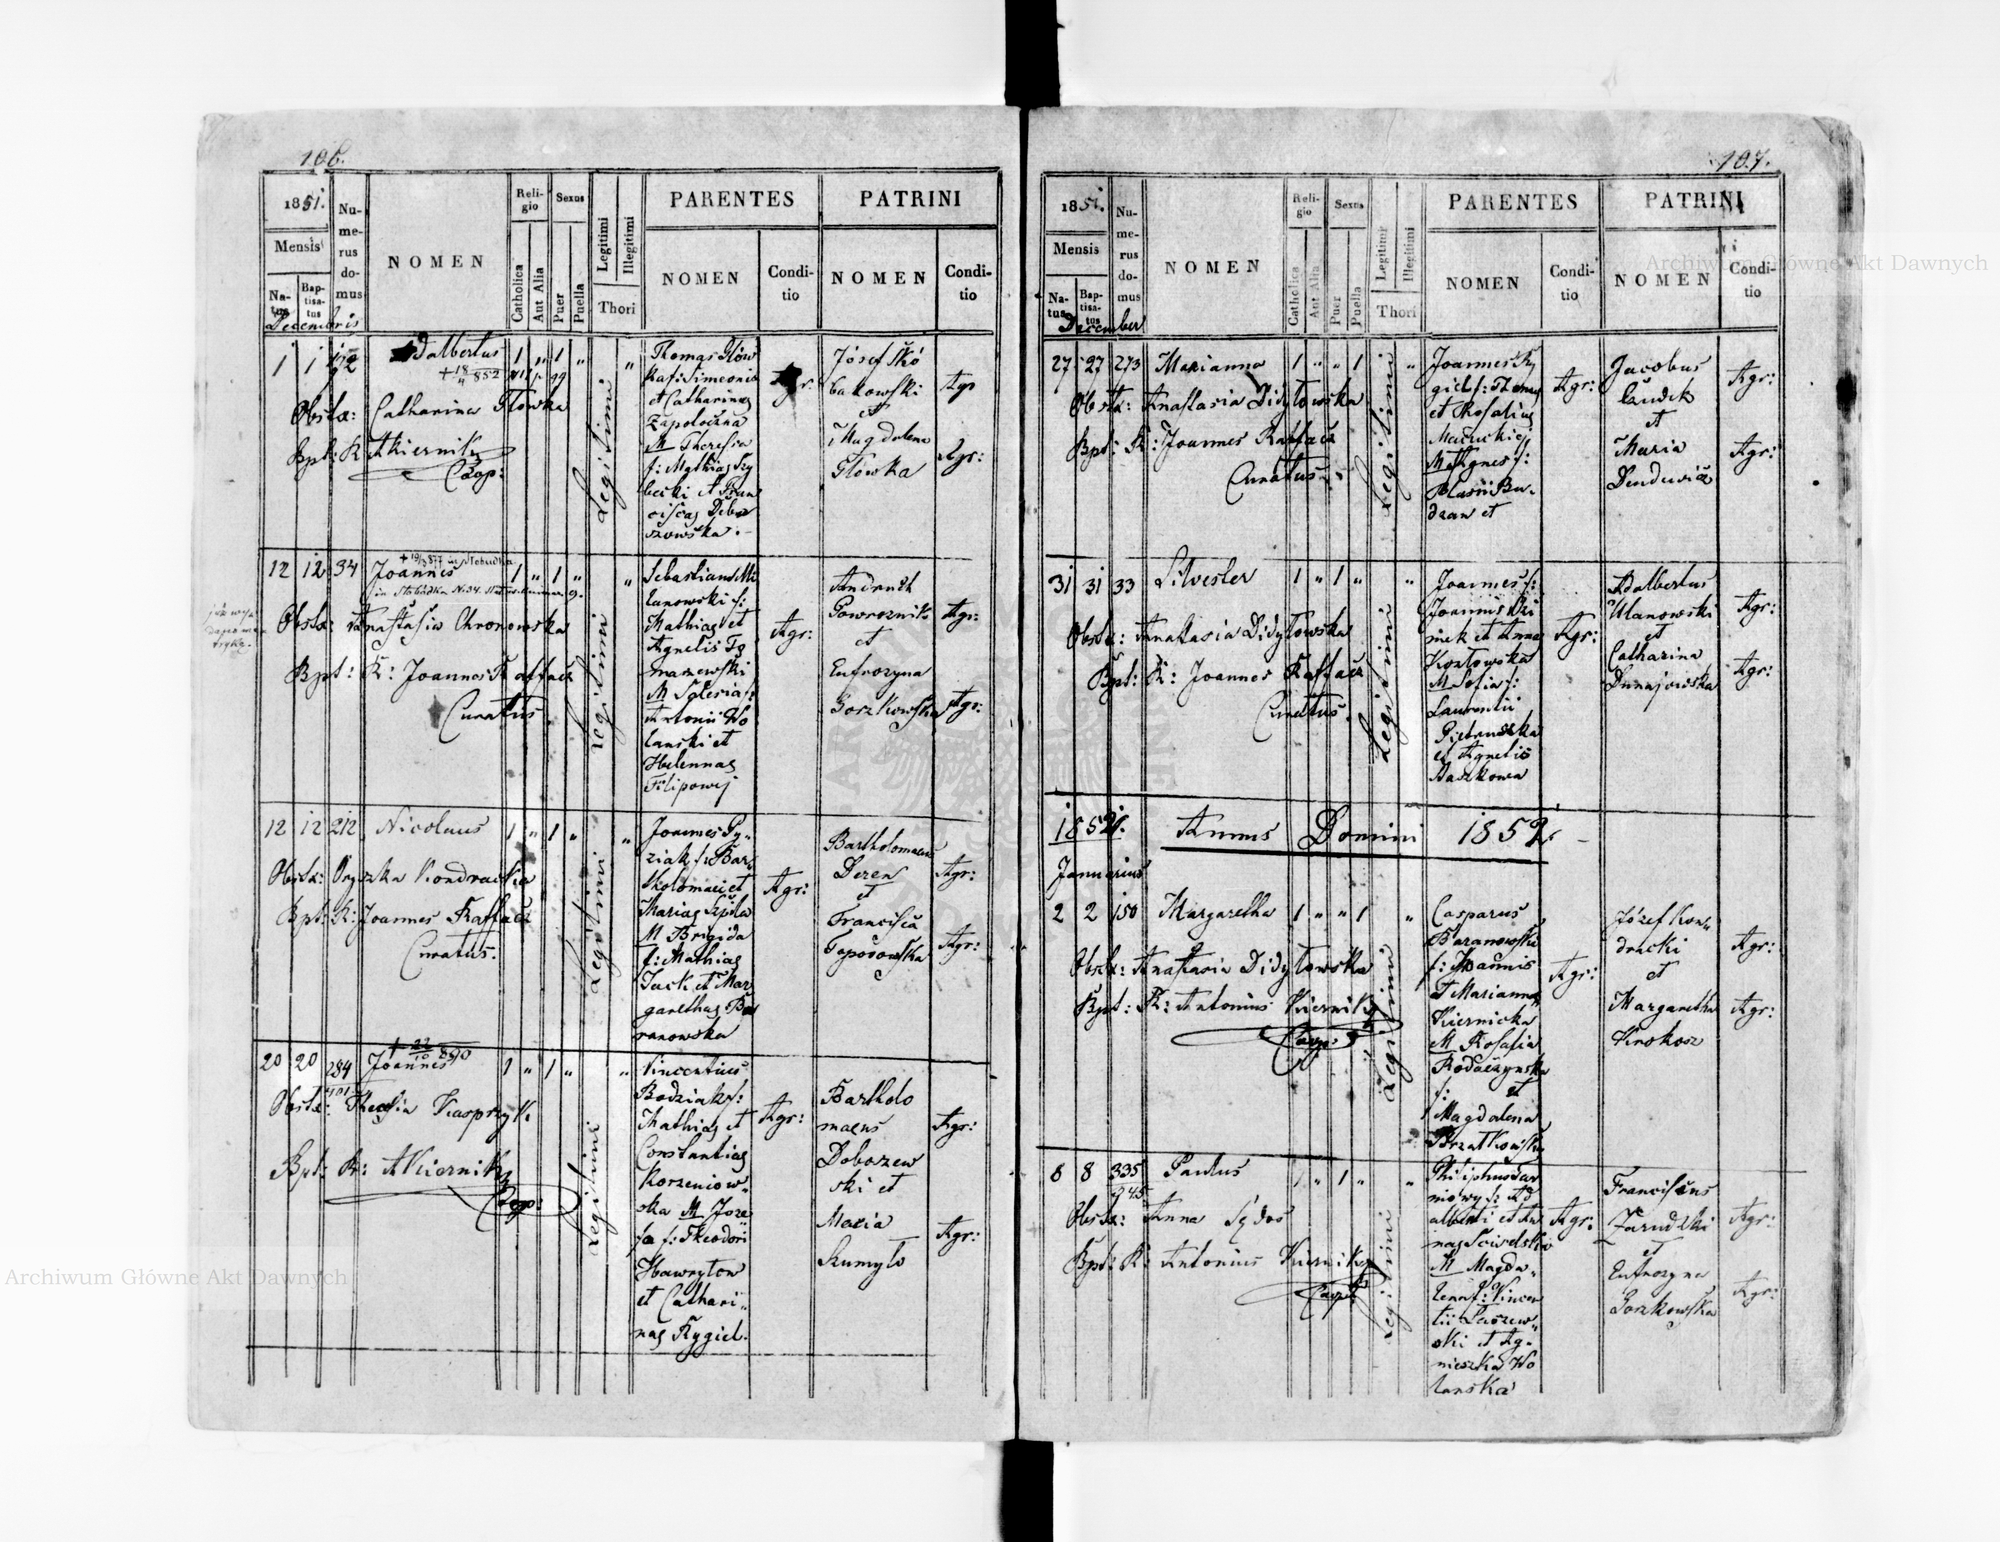 106.
1851.
Mensis
Na-
tus
Bap-
tisa-
tus
Nu-
me-
rus
do-
mus
NOMEN
Reli-
gio
Catholica
Aut Alia
Sexus
Puer
Puella
Legitimi
Illegitimi
Thori
PARENTES
NOMEN
Condi-
tio
PATRINI
NOMEN
Condi-
tio
Decembris
1 1 Adalbertus 1 " 1 " "
+ 18 852
Obstx: Catharina Glowka
Bpt: K AKiernik
Coop:
Legitimi
Thomas Glow
ka f: Simeonis
et Catharina
Zapołoczna
M Theresia
f: Mathias Szy
becki et Fran
ciscas Debo
szowska.
Józef Skó
bakowski
et
Magdalena
Glowka
Agr
Agr:
12 12 34 Joannes 1 " 1 " "
Obstx: Anastasia Chronowska
Bpt: K: Joannes Raffacz
Curatus
Legitimi
Sebastianus Mi
lanowski f:
Mathias et
Agnelis To
maszewski
M
Antonii Wo
lanski et
Helennas
Filipowij
Agr:
Andruch
Powroznik
et
Eufrozyna
Gorzkowska
Agr:
Agr:
12 12 212 Nicolaus 1 " 1 " "
Obstx: Kondracka
Bpt: K: Joannes Raffacz
Curatus.
Legitimi
Joannes Py-
ziak f: Bar
tholomaei et
Marias
M Brigida
f: Mathias
Juck et Mar
garethas Ba
ranowska
Agr:
Bartholomaeus
Deren
et
Francisca
Toporowska
Agr:
Agr:
+ 22 10 890
20 20 284 Joannes 1 " 1 " "
401
Obstx: Theresia Kasprzyk
Bpt: K: AKiernik
Coop:
Legitimi
Vincentius
Bodziak f:
Mathias et
Constantias
Korzeniow-
ska M Joze
fa f: Theodori
Hawryłow
et Cathari-
nas Rygiel.
Agr:
Bartholo
maeus
Doboszew
ski et
Maria
Szumyło
Agr:
Agr:
107.
1851.
Mensis
Na-
tus
Bap-
tisa-
tus
Nu-
me-
rus
do-
mus
NOMEN
Reli-
gio
Catholica
Aut Alia
Sexus
Puer
Puella
Legitimi
Illegitimi
Thori
PARENTES
NOMEN
Condi-
tio
PATRINI
NOMEN
Condi-
tio
December
27 27 273 Marianna 1 " " 1 "
Obstx: Anastasia Didyłowska
Bpt: K: Joannes Raffacz
Curatus
Legitimi
Joannes Ry
giel f: Thomas
et Rosalias
M Agnes f:
Blasii Bu-
dzan et
Agr:
Jacobus
et
Maria
Agr:
Agr:
31 31 33 Silvester 1 " 1 " "
Obstx: Anastasia Didyłowska
Bpt: K: Joannes Raffacz
Curatus
Legitimi
Joannes f:
Joannis Dzi
mek et Annas
Kozłowska
M Sofia f:
Laurentii
Pietruszka
et Agnelis
Baszkowa
Agr:
Adalbertus
Ulanowski
et
Catharina
Dunajowska
Agr:
Agr:
1852. Annus Domini 1852.
Januarius
2 2 150 Margaretha 1 " " 1 "
Obstx: Anastasia Didyłowska
Bpt: K: Antonius Kiernik
Coop:
Legitimi
Casparus
Baranowski
f: Joannis
et Marianna
Kiernicka
M Rosalia
Rodaczynska
f: et
Magdalena
Brzatkowska
Agr:
Józef Kon
dracki
et
Margaretha
Krokosz
Agr:
Agr:
8 8 335 Paulus 1 " 1 " "
945
Obstx: Anna Sydor
Bpt: K: Antonius Kiernik
Coop:
Legitimi
M Magda-
lena f: Vincen
tii
ski et Ag-
nieszka Wo
lanska
Agr:
Franciscus
Zarudzki
et
Eufrozyna
Gorzkowska
Agr:
Agr:
Archiwum Główne Akt Dawnych
Archiwum Główne Akt Dawnych